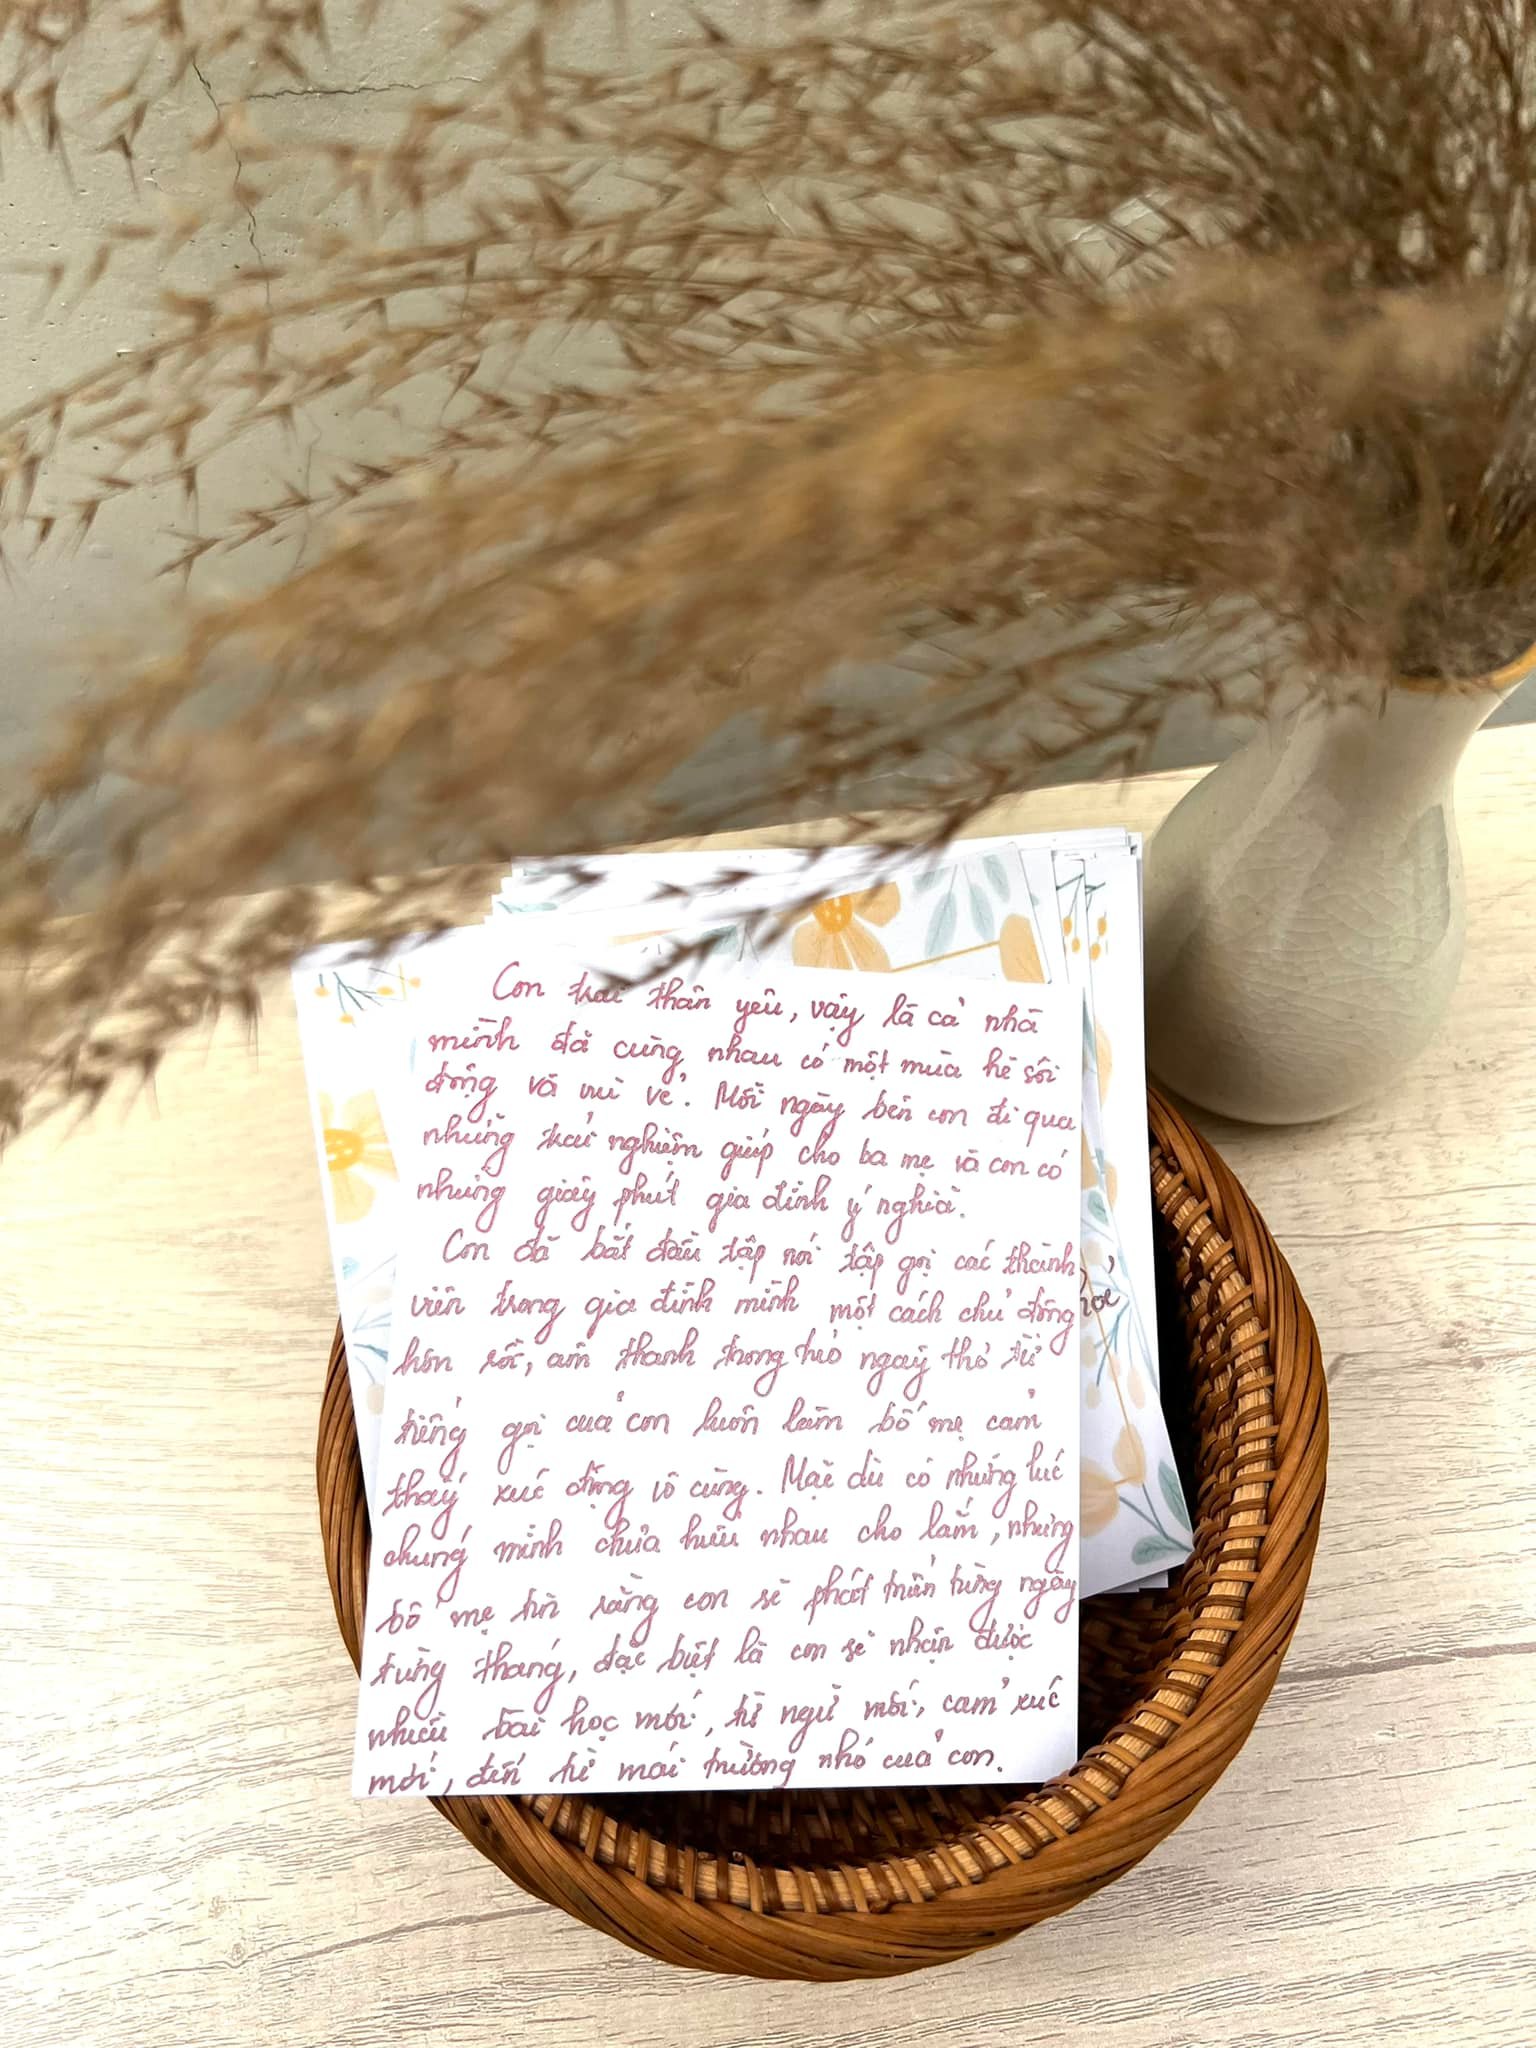 Con trai thân yêu, vậy là cả nhà
mình đã cùng nhau có một mùa hè sôi
động và vui vẻ. Mỗi ngày bên con đi qua
những trải nghiệm giúp cho ba mẹ và con có
những giây phút gia đình ý nghĩa.
Con đã bắt đầu tập nói tập gọi các thành
viên trong gia đình mình một cách chủ động
hơn rồi, âm thanh trong trẻo ngây thơ từ
tiếng gọi của con luôn làm bố mẹ cảm
thấy xúc động vô cùng. Mặc dù có những lúc
chúng mình chưa hiểu nhau cho lắm, nhưng
bố mẹ tin rằng con sẽ phát triển từng ngày
từng tháng, đặc biệt là con sẽ nhận được
nhiều bài học mới, từ ngữ mới, cảm xúc
mới, đến từ mái trường nhỏ của con.